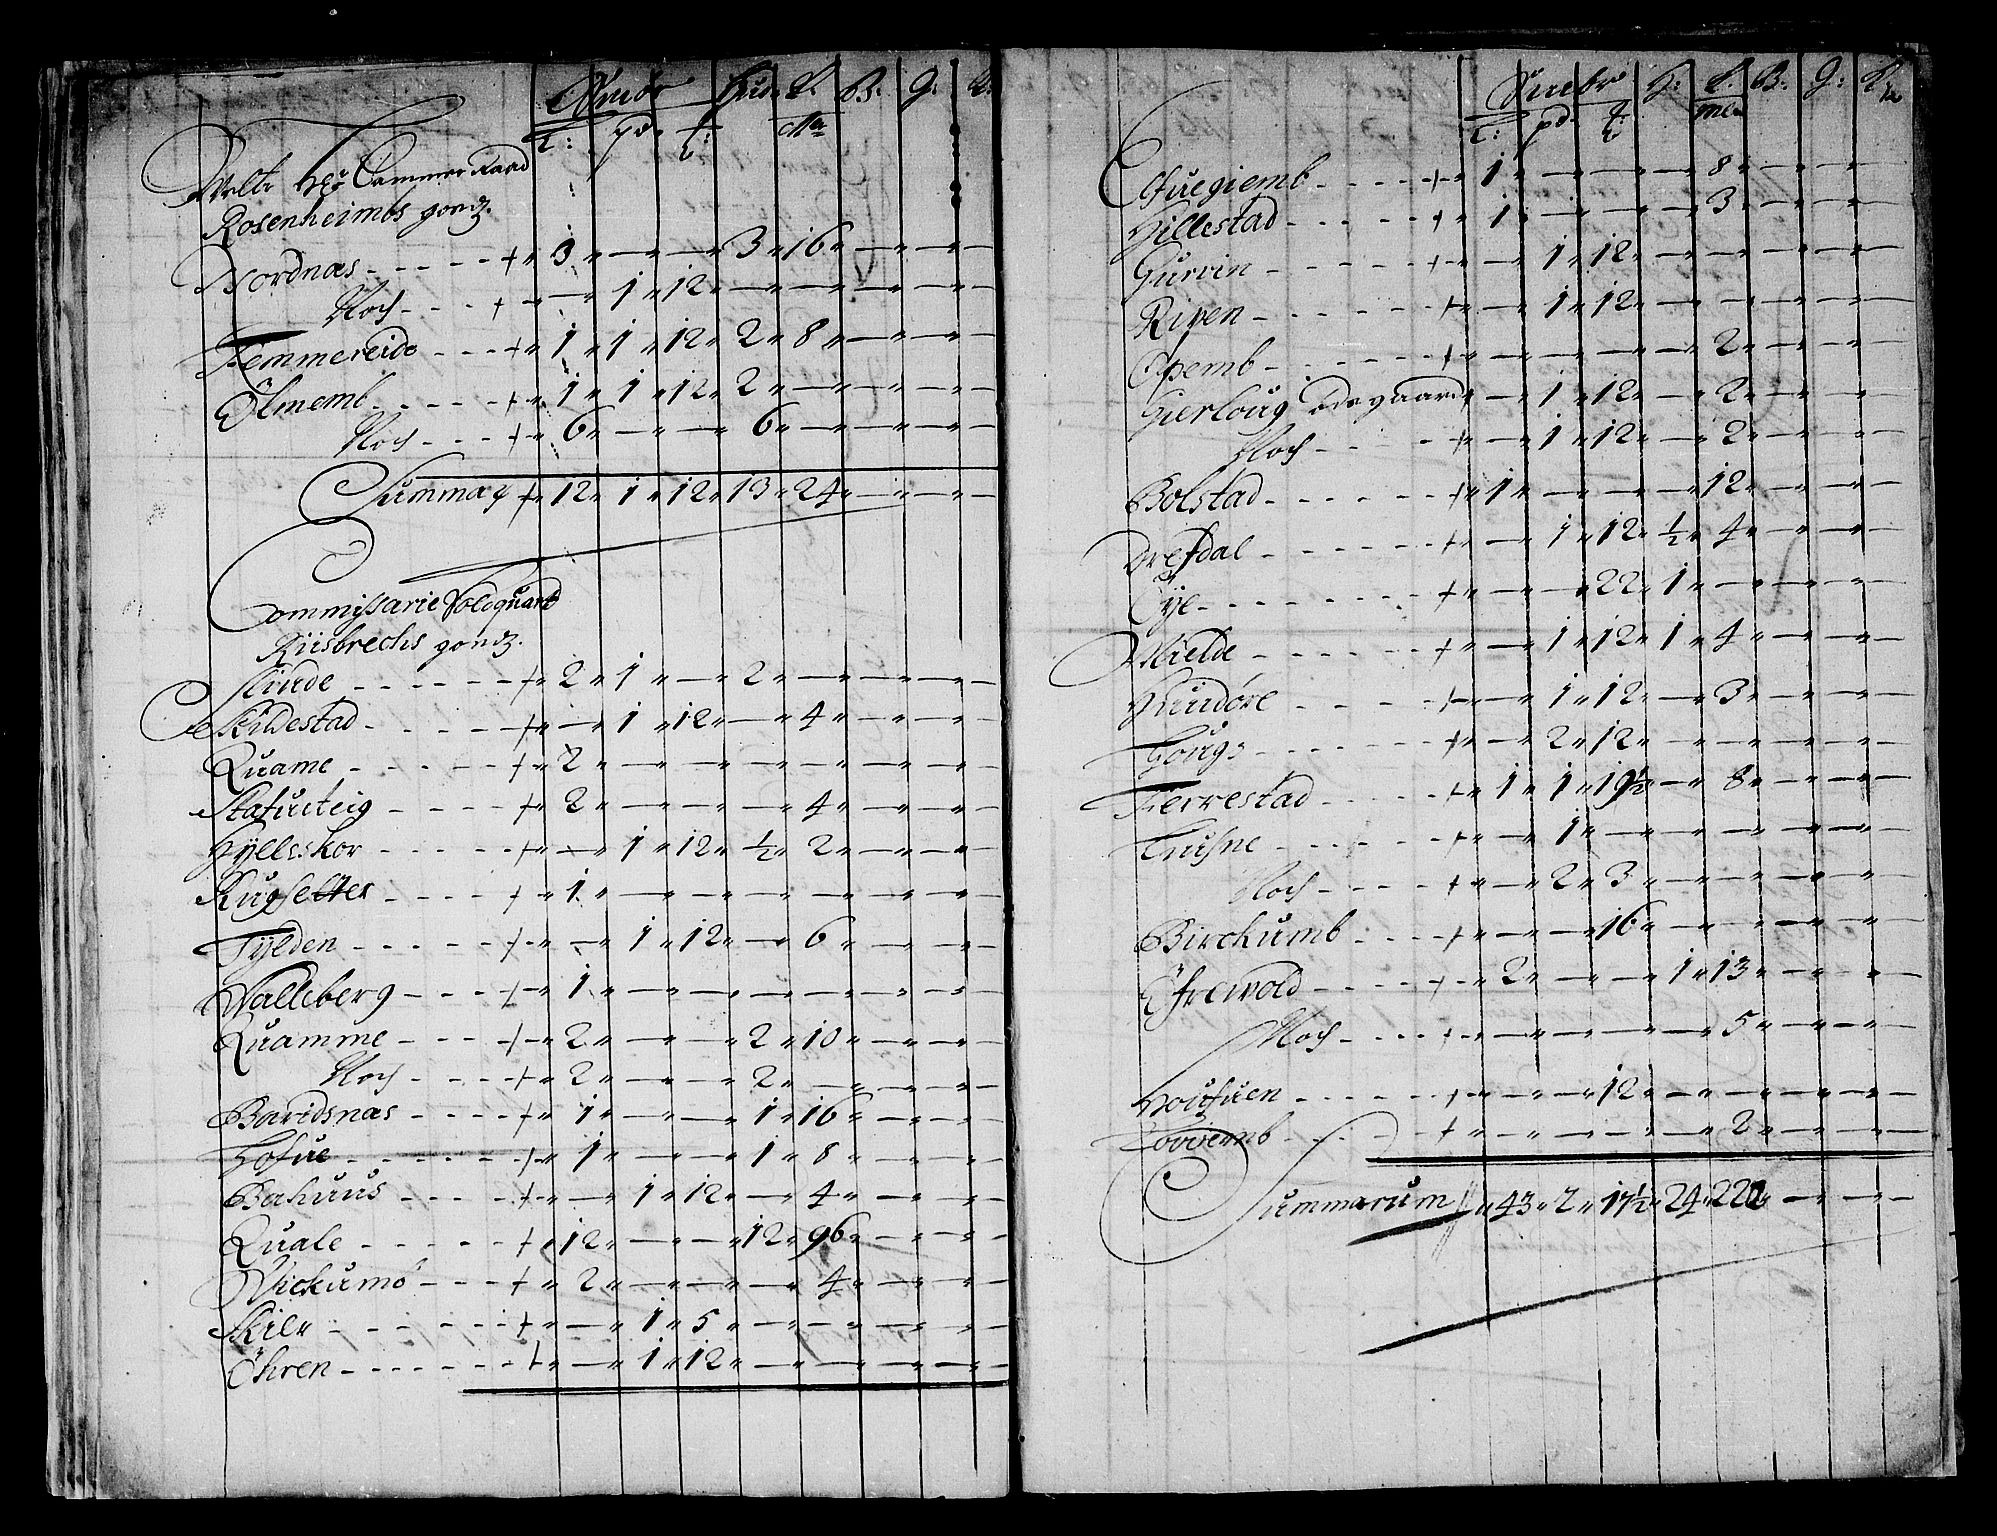 Smør Hud: L. B: g: 
T: pd: L: Ma
Welb: Hr: Cammer Raad
Rosenheimbs gondz.
Nordnæs - - - - - + „ 3 „ — „ — „ 3 „ 16 „ — „ — „ —
Noch - - - + „ — „ 1 „ 12 „ — „ — „ — „ — „ —
Femmereide - - - + „ 1 „ 1 „ 12 „ 2 „ 8 „ — „ — „ —
Ölmemb - - - - - + „ 1 „ 1 „ 12 „ 2 „ — „ — „ — „ —
Noch - - - + „ 6 „ — „ — „ 6 „ — „ — „ — „ —
Summa + „ 12 „ 1 „ 12 „ 13 „ 24 „ — „ — „ —
Commissarie Folcquard
Riisbrechs gondz.
Slinde - - - - - - + „ 2 „ 1 „ — „ 2 „ — „ — „ — „ —
Skildestad - - - - - + „ — „ 1 „ 12 „ — „ 4 „ — „ — „ —
Quame - - - - - + „ 2 „ — „ — „ — „ — „ — „ — „ —
Stafueteig - - - - + „ 2 „ — „ — „ — „ 4 „ — „ — „ —
Hÿells:kor - - - - + „ — „ 1 „ 12 „ ½ „ 2 „ — „ — „ —
Rugsetter - - - - + „ 1 „ — „ — „ — „ — „ — „ — „ —
Tÿlden - - - - - + „ — „ 1 „ 12 „ — „ 6 „ — „ — „ —
Walleberg - - - + „ 1 „ — „ — „ — „ — „ — „ — „ —
Quamme - - - - + „ 2 „ — „ — „ 2 „ 10 „ — „ — „ —
Noch - - - - + „ 2 „ — „ — „ 2 „ — „ — „ — „ —
Baridsnæs - - - - + „ 1 „ — „ — „ 1 „ 16 „ — „ — „ —
Hofue - - - - - - + „ 1 „ — „ — „ 1 „ 8 „ — „ — „ —
Bahuus - - - - + „ — „ 1 „ 12 „ — „ 4 „ — „ — „ —
Quale - - - - - + „ 12 „ — „ — „ 12 „ 96 „ — „ — „ —
Wickumb - - - + „ 2 „ — „ — „ — „ 4 „ — „ — „ —
Skilr - - - - - - + „ — „ 1 „ 5 „ — „ — „ — „ — „ —
Öhren - - - - - - + „ — „ 1 „ 12 „ — „ — „ — „ — „ —
Smebr H: L. B: g: 
T: pd: L: mle
Efuegiemb - - - - + „ 1 „ — „ — „ — „ 8 „ — „ — „ —
Hillestad - - - - - + „ 1 „ — „ — „ — „ 3 „ — „ — „ —
Gurvin - - - - - - + „ — „ 1 „ 12 „ — „ — „ — „ — „ —
Ripen - - - - - - + „ — „ 1 „ 12 „ — „ — „ — „ — „ —
Opemb - - - - - - + „ — „ — „ — „ — „ 2 „ — „ — „ —
Gierloug ödegaard + „ — „ 1 „ 12 „ — „ 2 „ — „ — „ —
Noch - - - - + „ — „ 1 „ 12 „ — „ 2 „ — „ — „ —
Bolstad - - - - - - + „ 1 „ — „ — „ — „ 12 „ — „ — „ —
Drefdal - - - - - - + „ — „ 1 „ 12 „ ½ „ 4 „ — „ — „ —
Öÿe - - - - - - - + „ — „ — „ 22 „ 1 „ — „ — „ — „ —
Mielde - - - - - - + „ — „ 1 „ 12 „ 1 „ 4 „ — „ — „ —
Hundöre - - - - + „ — „ 1 „ 12 „ — „ 3 „ — „ — „ —
Houge - - - - - - + „ — „ 2 „ 12 „ — „ — „ — „ — „ —
Fierrestad - - - - + „ 1 „ 1 „ 19½ „ — „ 8 „ — „ — „ —
Trusne - - - - - + „ — „ 1 „ — „ — „ — „ — „ — „ —
Noch - - - - + „ — „ 2 „ 3 „ — „ — „ — „ — „ —
Birckumb - - - - + „ — „ — „ 16 „ — „ — „ — „ — „ —
Öfrewold - - - - + „ 2 „ — „ — „ 1 „ 13 „ — „ — „ —
Noch - - - - + „ — „ — „ — „ — „ 5 „ — „ — „ —
Houfuen - - - - - + „ — „ — „ 12 „ — „ — „ — „ — „ —
Tovremb - - - - + „ — „ — „ — „ — „ 2 „ — „ — „ —
Summarum „ 43 „ 2 „ 17½ „ 24 „ 222 „ — „ — „ —